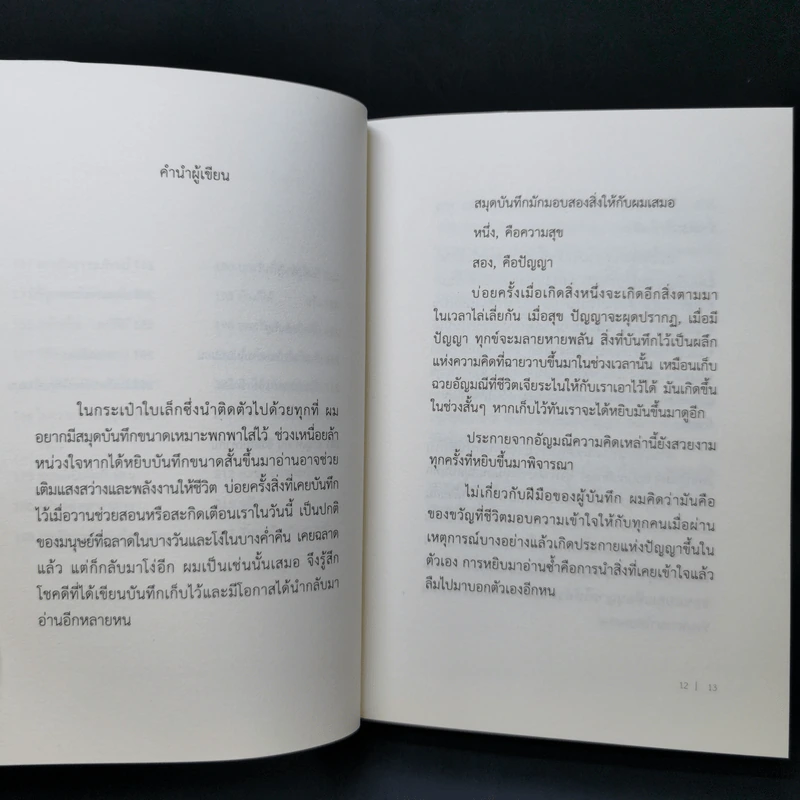 คำนำผู้เขียน
ในกระเป๋าใบเล็กซึ่งนำติดตัวไปด้วยทุกที่ ผม
อยากมีสมุดบันทึกขนาดเหมาะพกพาใส่ไว้ ช่วงเหนื่อยล้า
หน่วงใจหากได้หยิบบันทึกขนาดสั้นขึ้นมาอ่านอาจช่วย
เติมแสงสว่างและพลังงานให้ชีวิต บ่อยครั้งสิ่งที่เคยบันทึก
ไว้เมื่อวานช่วยสอนหรือสะกิดเตือนเราในวันนี้ เป็นปกติ
ของมนุษย์ที่ฉลาดในบางวันและโง่ในบางค่ำคืน เคยฉลาด
แล้ว แต่ก็กลับมาโง่อีก ผมเป็นเช่นนั้นเสมอ จึงรู้สึก
โชคดีที่ได้เขียนบันทึกเก็บไว้และมีโอกาสได้นำกลับมา
อ่านอีกหลายหน
สมุดบันทึกมักมอบสองสิ่งให้กับผมเสมอ
หนึ่ง, คือความสุข
สอง, คือปัญญา
บ่อยครั้งเมื่อเกิดสิ่งหนึ่งจะเกิดอีกสิ่งตามมา
ในเวลาไล่เลี่ยกัน เมื่อสุข ปัญญาจะผุดปรากฏ, เมื่อมี
ปัญญา ทุกข์จะมลายหายพลัน สิ่งที่บันทึกไว้เป็นผลึก
แห่งความคิดที่ฉายวาบขึ้นมาในช่วงเวลานั้น เหมือนเก็บ
ฉวยอัญมณีที่ชีวิตเจียระไนให้กับเราเอาไว้ได้ มันเกิดขึ้น
ในช่วงสั้นๆ หากเก็บไว้ทันเราจะได้หยิบมันขึ้นมาดูอีก
ประกายจากอัญมณีความคิดเหล่านี้ยังสวยงาม
ทุกครั้งที่หยิบขึ้นมาพิจารณา
ไม่เกี่ยวกับฝีมือของผู้บันทึก ผมคิดว่ามันคือ
ของขวัญที่ชีวิตมอบความเข้าใจให้กับทุกคนเมื่อผ่าน
เหตุการณ์บางอย่างแล้วเกิดประกายแห่งปัญญาขึ้นใน
ตัวเอง การหยิบมาอ่านซ้ำคือการนำสิ่งที่เคยเข้าใจแล้ว
ลืมไปมาบอกตัวเองอีกหน
12 | 13